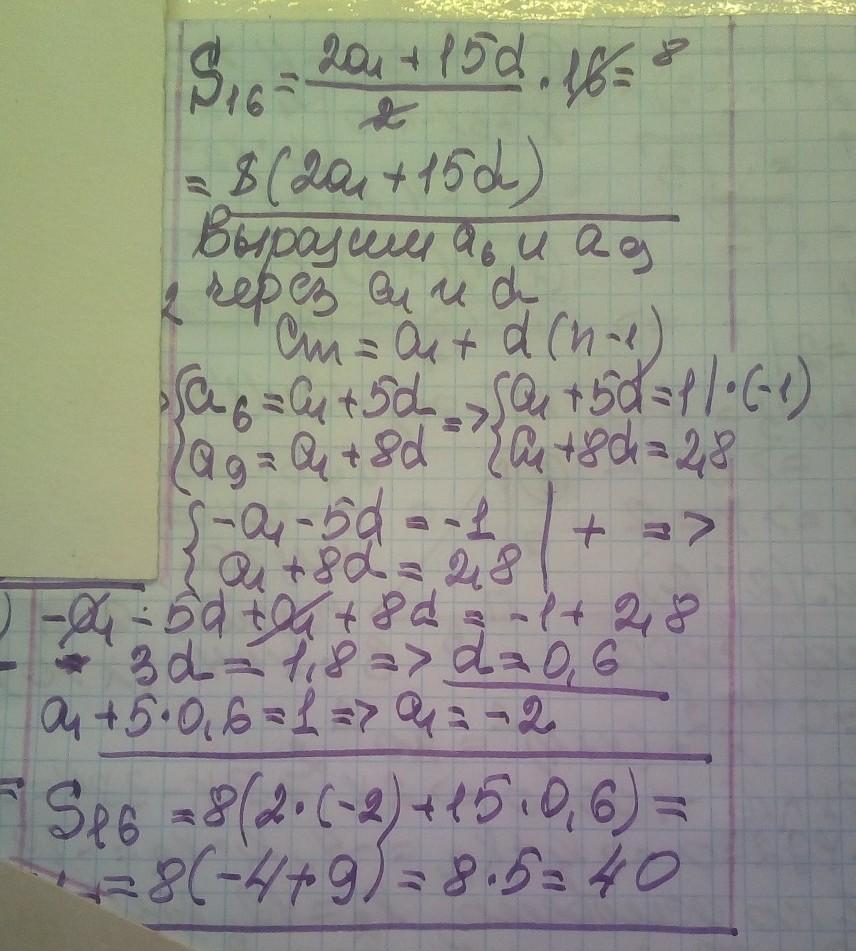 S₁₆ = (2a₁ + 15d)/2 · 16 = 8
= 8(2a₁ + 15d)
Выразим a₆ и a₉
2 через a₁ и d
an = a₁ + d(n-1)
{a₆ = a₁ + 5d => {a₁ + 5d = 1 | · (-1)
{a₉ = a₁ + 8d {a₁ + 8d = 2,8
{-a₁ - 5d = -1 | + =>
{a₁ + 8d = 2,8
) -a₁ - 5d + a₁ + 8d = -1 + 2,8
3d = 1,8 => d = 0,6
a₁ + 5·0,6 = 1 => a₁ = -2
= S₁₆ = 8(2·(-2) + 15·0,6) =
= 8(-4+9) = 8·5 = 40